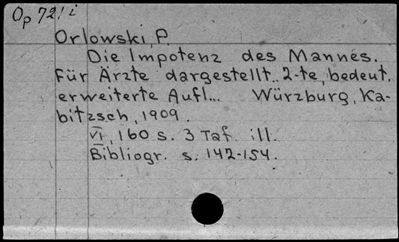 Op 721 i
Orlowski, P.
Die Impotenz des Mannes.
Für Ärzte dargestellt.. 2-te, bedeut.
erweiterte Aufl... Würzburg, Ka-
bitzsch, 1909.
VI, 160 s. 3 Taf. ill.
Bibliogr. s. 142-154.